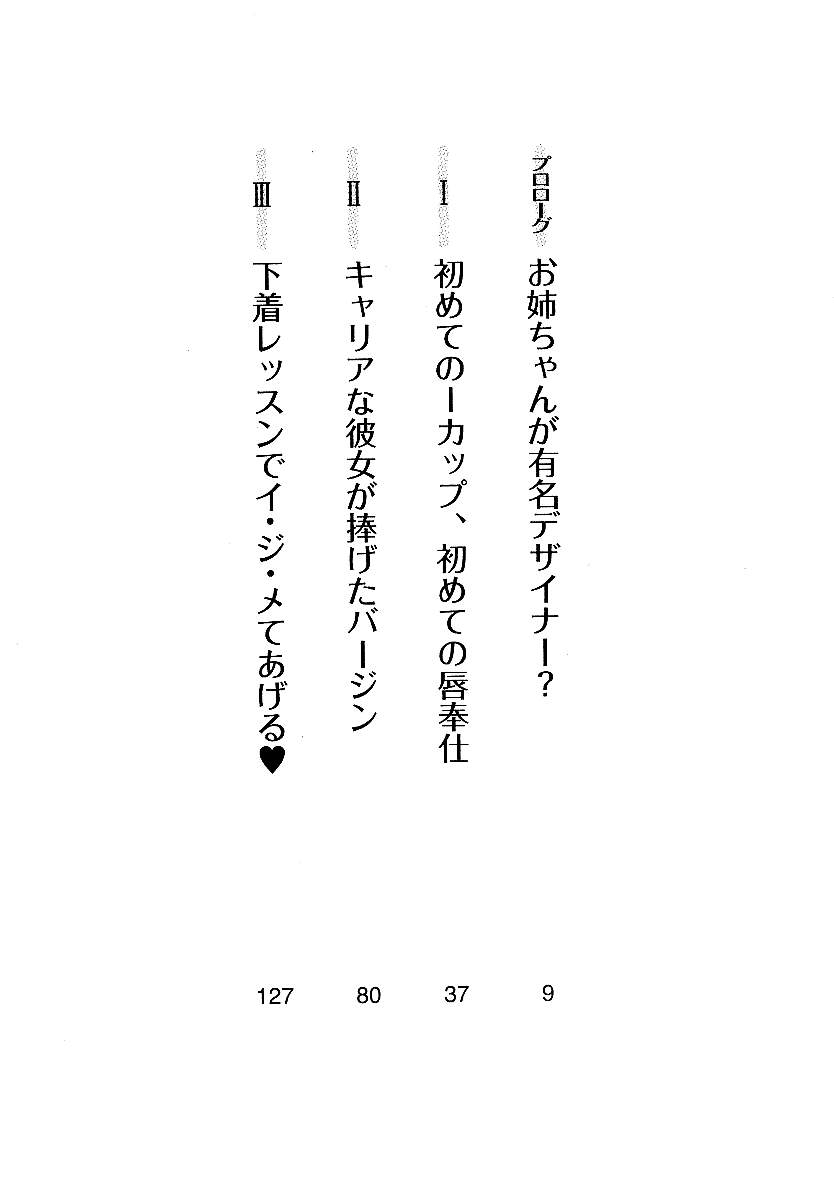 プロローグ お姉ちゃんが有名デザイナー? 9
Ⅰ 初めてのIカップ、初めての唇奉仕 37
Ⅱ キャリアな彼女が捧げたバージン 80
Ⅲ 下着レッスンでイ・ジ・メてあげる♥ 127